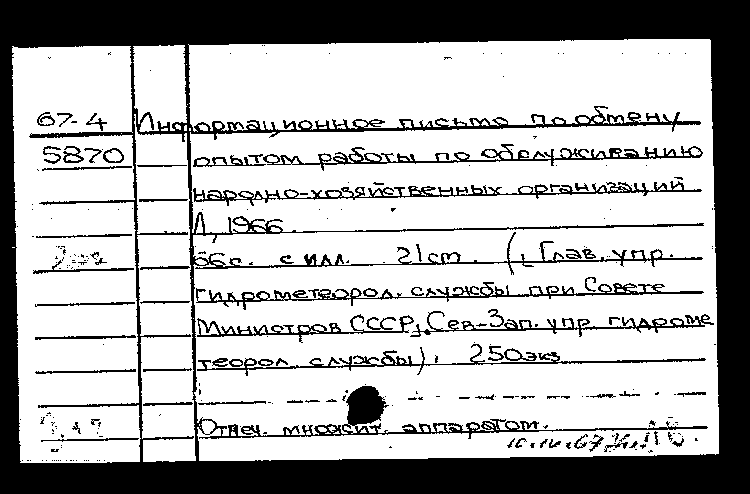 67-4 Информационное письмо по обмену
5870 опытом работы по обслуживанию
народно-хозяйственных организаций
Л, 1966.
66с. с илл. 21cm. (1, Глав. упр.
гидрометеорол. службы при Совете
Министров СССР, Сев-Зап. упр. гидроме
теорол. службы). 250экз
Отпеч. множит. аппаратом.